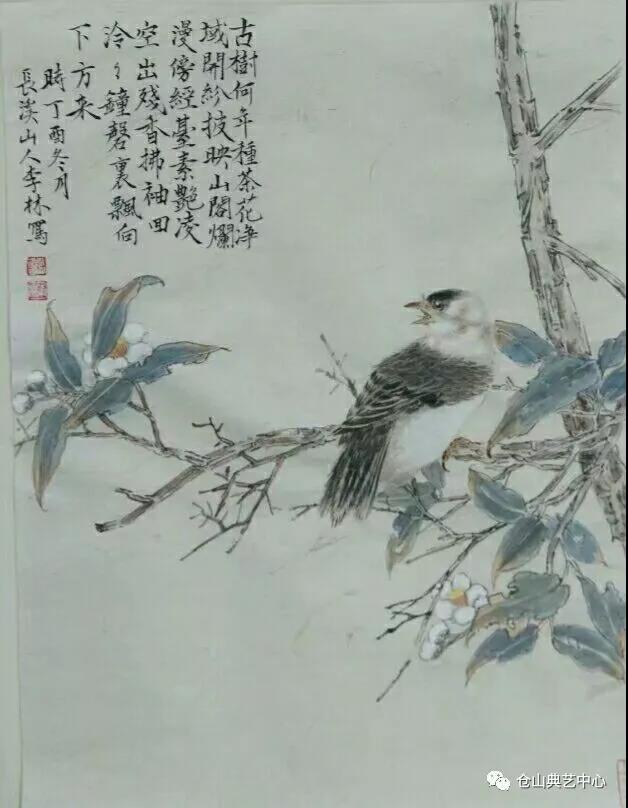 古樹何年種茶花淨
域開紗披映山閣爛
漫傍經臺素艷凌
空出殘香拂袖回
泠々鐘磬裏飄向
下方来
時丁酉冬月
長溪山人李林寫
仓山典艺中心